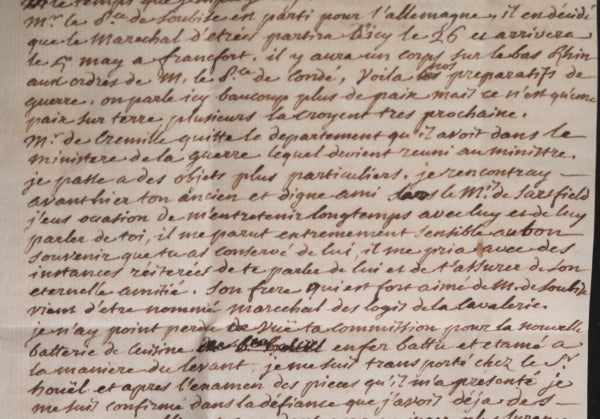 Mr. le P.ce de Soubise est parti pour l'allemagne, il en décidé
que le Marechal d'etrées partira d'icy le 26 et arrivera
le 5 may a francfort. il y aura un corps sur le bas Rhin
aux ordres de M. le P.ce de Condé, Voila nos preparatifs de
guerre. on parle icy baucoup plus de paix mais ce n'est qu'une
paix sur terre, plusieurs la croyent tres prochaine.
Mr. de Cremille quitte le departement qu'il avoit dans le
ministere de la guerre lequel devient reuni au ministre.
je passe a des objets plus particuliers, je rencontray
avanthier ton ancien et digne ami le Mis. de Sarsfield
j'eus occasion de m'entretenir longtemps avec luy et de luy
parler de toi, il me parut extremement sensible au bon
souvenir que tu as conservé de lui, il me pria avec des
instances reiterées de te parler de lui et de t'assurer de son
eternelle amitié. Son frere qui est fort aimé de M. de Soubise
vient d'etre nommé marechal des logis de la cavalerie.
je n'ay point perdu de vuë ta commission pour la nouvelle
batterie de Cuisine en fer battu et etamé a
la maniere du levant. je me suis transporté chez le Sr.
houël et apres l'examen des pieces qu'il m'a presenté je
me suis confirmé dans la défiance que j'avois déja de s-